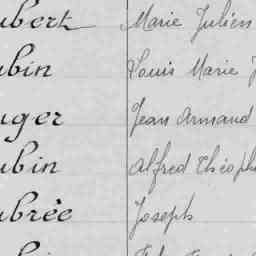 ubert Marie Julien
ubin Louis Marie J
uger Jean Armand
ubin Alfred Théoph
ubrée Joseph